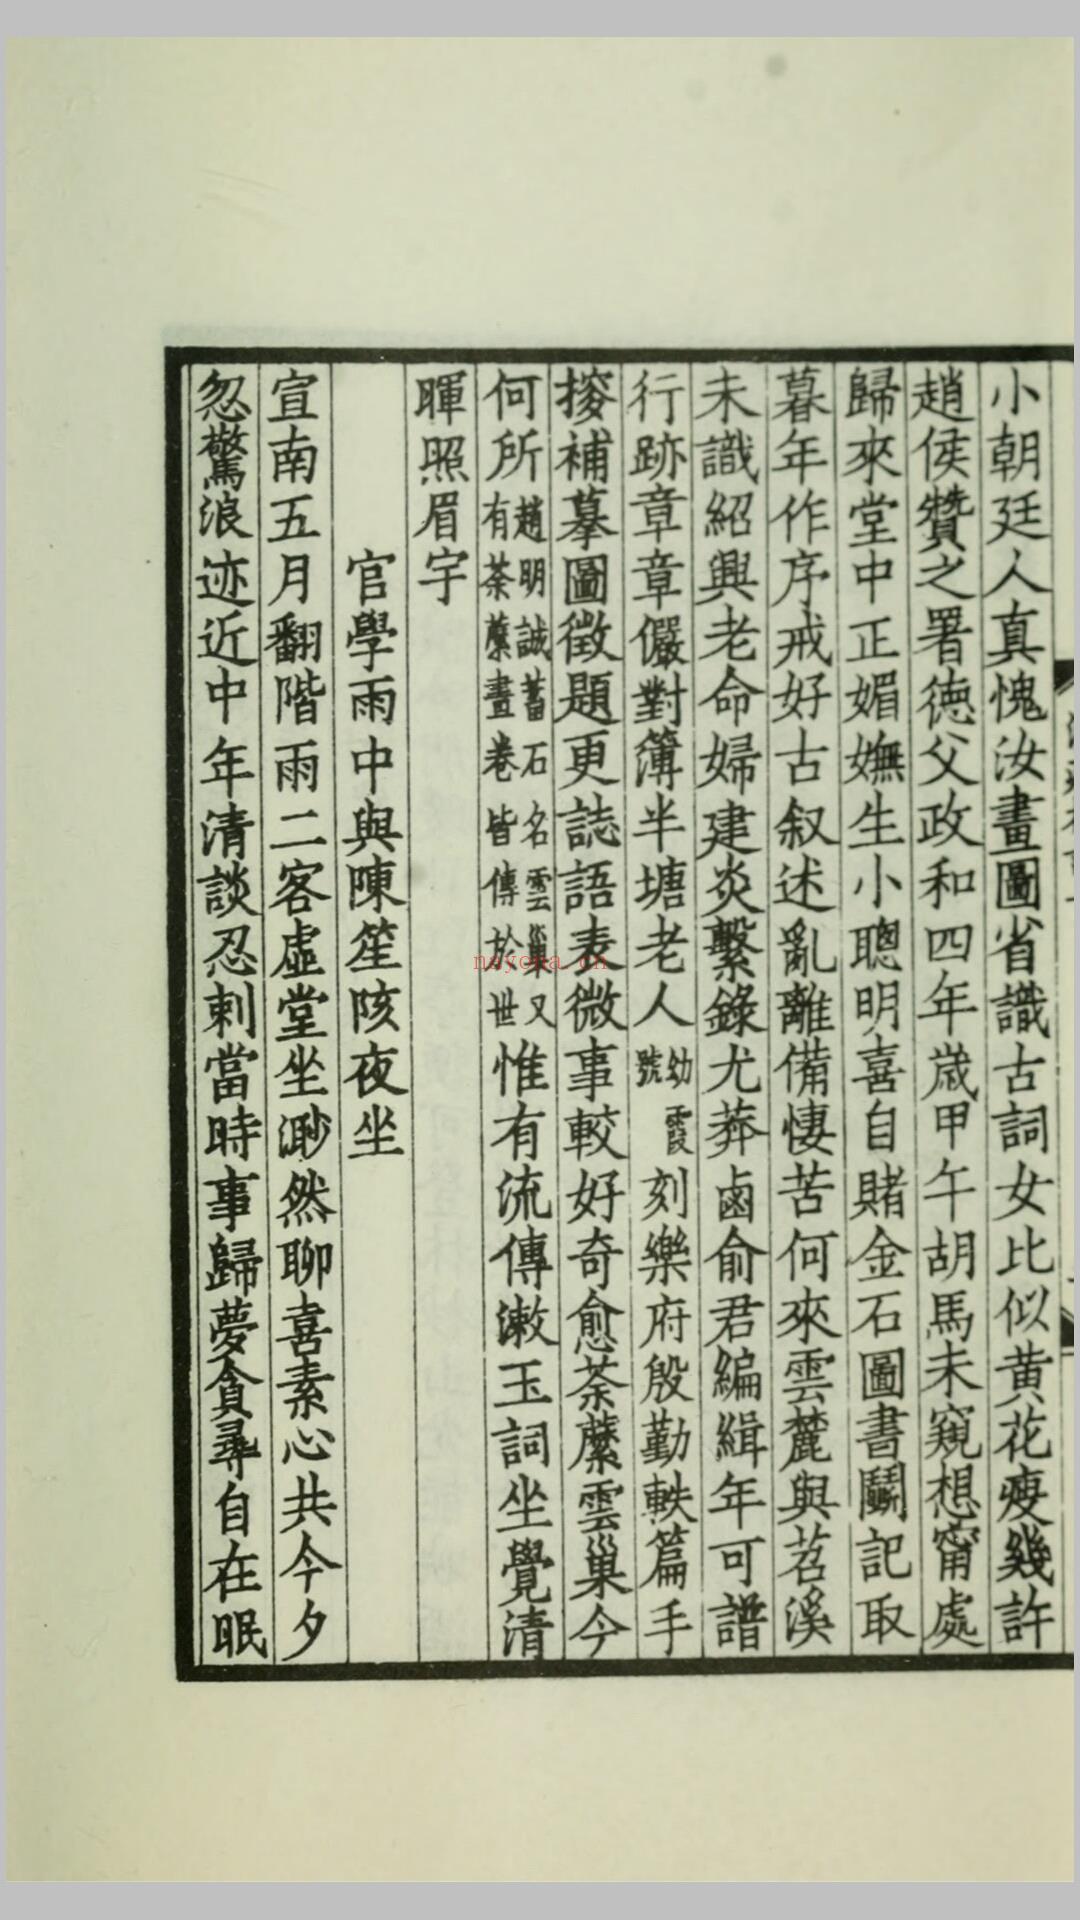 小朝廷人真愧汝畫圖省識古詞女比似黃花瘦幾許
趙侯贊之署德父政和四年歲甲午胡馬未窺想甯處
歸來堂中正媚嫵生小聰明喜自賭金石圖書鬭記取
暮年作序戒好古叙述亂離備悽苦何來雲麓與苕溪
未識紹興老命婦建炎繫錄尤莽鹵俞君編緝年可譜
行跡章章儼對簿半塘老人幼霞號刻樂府殷勤軼篇手
㨮補摹圖徵題更誌語表微事較好奇愈荼蘼雲巢今
何所趙明誠蓄石名雲巢又有荼蘼畫卷皆傳於世惟有流傳漱玉詞坐覺清
暉照眉宇
官學雨中與陳笙陔夜坐
宣南五月翻階雨二客虛堂坐渺然聊喜素心共今夕
忽驚浪迹近中年清談忍刺當時事歸夢貪尋自在眠
nayona.cn